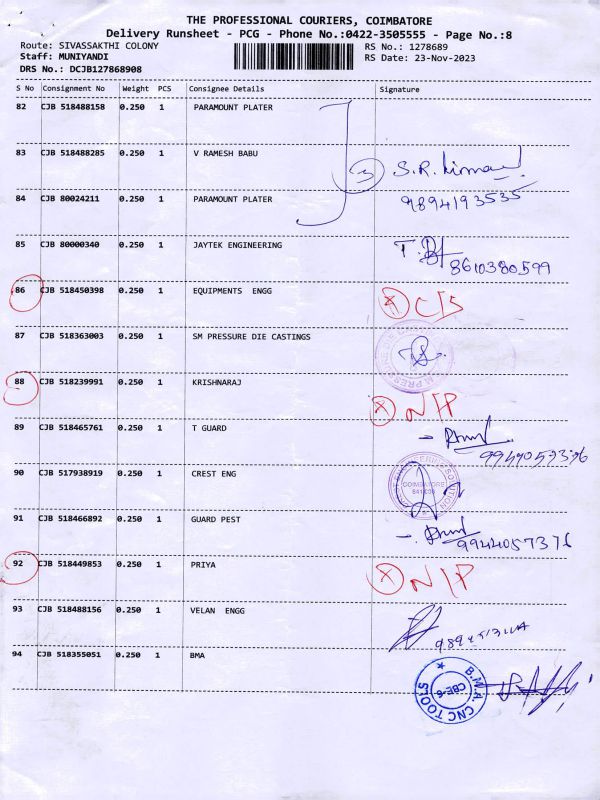 THE PROFESSIONAL COURIERS, COIMBATORE
Delivery Runsheet - PCG - Phone No.:0422-3505555 - Page No.:8
Route: SIVASSAKTHI COLONY RS No.: 1278689
Staff: MUNIYANDI RS Date: 23-Nov-2023
DRS No.: DCJB127868908
S No Consignment No Weight PCS Consignee Details Signature
82 CJB 518488158 0.250 1 PARAMOUNT PLATER
83 CJB 518488285 0.250 1 V RAMESH BABU
3 S.R.
84 CJB 80024211 0.250 1 PARAMOUNT PLATER 9894193535
85 CJB 80000340 0.250 1 JAYTEK ENGINEERING
8610380599
86 CJB 518450398 0.250 1 EQUIPMENTS ENGG X C/S
87 CJB 518363003 0.250 1 SM PRESSURE DIE CASTINGS
88 CJB 518239991 0.250 1 KRISHNARAJ X N/P
89 CJB 518465761 0.250 1 T GUARD
9944057376
90 CJB 517938919 0.250 1 CREST ENG
COIMBATORE
91 CJB 518466892 0.250 1 GUARD PEST
9944057376
92 CJB 518449853 0.250 1 PRIYA X N/P
93 CJB 518488156 0.250 1 VELAN ENGG
94 CJB 518355051 0.250 1 BMA
B.M.A. CNC TOOLS
CBE-6